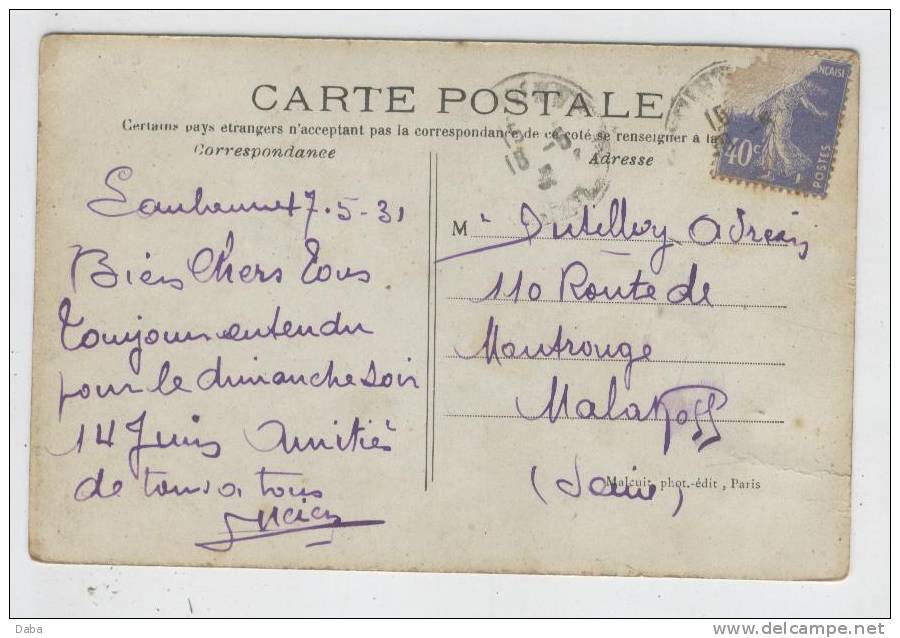 CARTE POSTALE
Certains pays étrangers n'acceptant pas la correspondance de ce coté se renseigner à la
Correspondance
Adresse
40c
POSTES
7.5-31
Bien Chers Tous
Toujours entendu
pour le dimanche soir
14 Juin Amitiés
de tous a tous
Lucien
M
110 Route de
Montrouge
Malakoff
(Seine)
Malcuit phot.-édit, Paris
Daba
www.delcampe.net